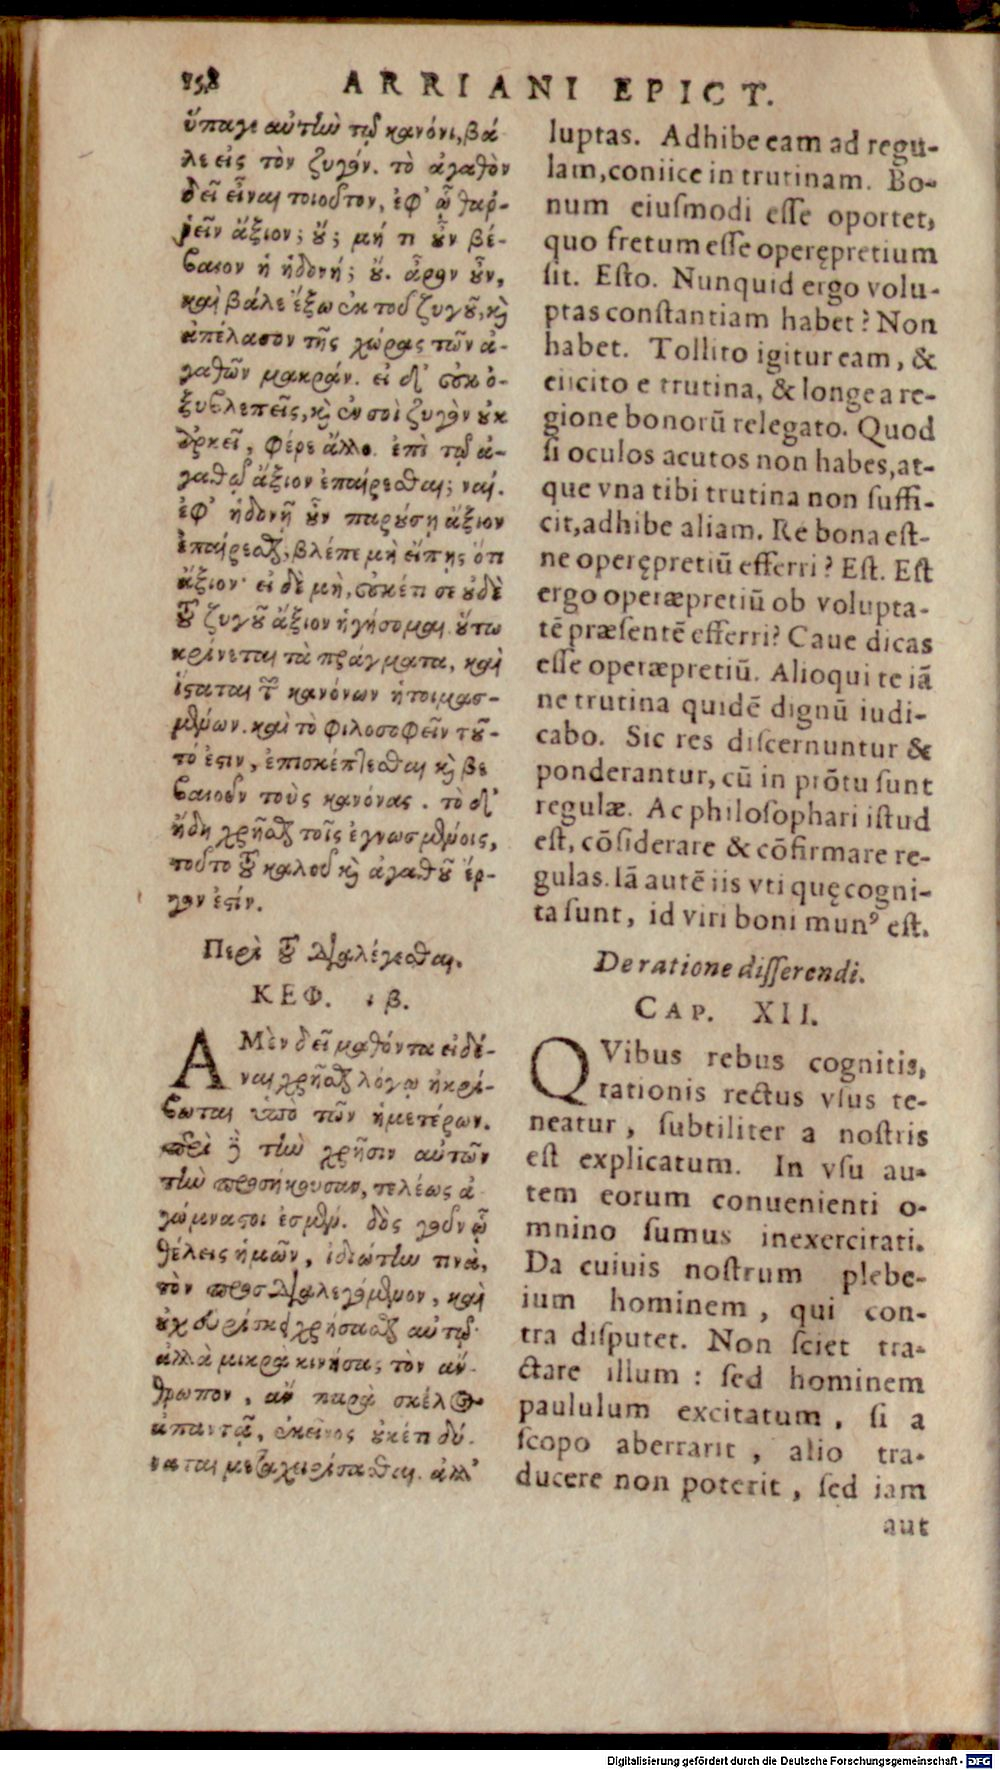 158 ARRIANI EPICT.
ὕπαγε αὐτὴν τῷ κανόνι, βά-
λε εἰς τὸν ζυγόν. τὸ ἀγαθὸν
δεῖ εἶναι τοιοῦτον, ἐφ᾽ ᾧ θαῤ-
ῥεῖν ἄξιον; ȣ̓; μή τι ȣ̓͂ν βέ-
βαιον ἡ ἡδονή; ȣ̓. ἆρον ȣ̓͂ν,
καὶ βάλε ἔξω ἐκ τοῦ ζυγȣ͂, κ̀
ἀπέλασον τῆς χώρας τῶν ἀ-
γαθῶν μακράν. εἰ δ᾽ οὐκ ὀ-
ξυβλεπεῖς, κ̀ ἐν σοὶ ζυγὸν ȣ̓κ
ἀρκεῖ, φέρε ἄλλο. ἐπὶ τῷ ἀ-
γαθῷ ἄξιον ἐπαίρεσθαι; ναί.
ἐφ᾽ ἡδονῇ ȣ̓͂ν παρȣ́σῃ ἄξιον
ἐπαίρεσθαι; βλέπε μὴ εἴπῃς ὅτι
ἄξιον· εἰ δὲ μὴ, οὐκέτι σε ȣ̓δὲ
τȣ͂ ζυγȣ͂ ἄξιον ἡγήσομαι. ȣ̔́τω
κρίνεται τὰ πράγματα, καὶ
ἵσταται τῶν κανόνων ἡτοιμασ-
μένων. καὶ τὸ φιλοσοφεῖν τȣ͂-
τό ἐστιν, ἐπισκέπτεσθαι κ̀ βε
βαιοῦν τοὺς κανόνας. τὸ δ᾽
ἤδη χρῆσθαι τοῖς ἐγνωσμένοις,
τοῦτο τȣ͂ καλοῦ κ̀ ἀγαθȣ͂ ἔρ-
γον ἐστίν.
Περὶ τȣ͂ διαλέγεσθαι.
ΚΕΦ. ιβ.
Α Μὲν δεῖ μαθόντα εἰδέ-
ναι χρῆσθαι λόγῳ ἠκρί-
βωται ὑπὸ τῶν ἡμετέρων.
περὶ δὲ τὴν χρῆσιν αὐτῶν
τὴν προσήκουσαν, τελέως ἀ
γύμναστοι ἐσμέν. δὸς γοῦν ᾧ
θέλεις ἡμῶν, ἰδιώτην τινὰ,
τὸν προσδιαλεγόμενον, καὶ
ȣ̓χ εὑρίσκει χρήσασθαι αὐτῷ·
ἀλλὰ μικρὰ κινήσας τὸν ἄν-
θρωπον, ἂν παρὰ σκέλος
ἀπαντᾷ, ἐκεῖνος ȣ̓κέτι δύ-
ναται μεταχειρίσασθαι. ἀλλ᾽
luptas. Adhibe eam ad regu-
lam, coniice in trutinam. Bo-
num eiusmodi esse oportet,
quo fretum esse operępretium
sit. Esto. Nunquid ergo volu-
ptas constantiam habet? Non
habet. Tollito igitur eam, &
eiicito e trutina, & longe a re-
gione bonorū relegato. Quod
si oculos acutos non habes, at-
que vna tibi trutina non suffi-
cit, adhibe aliam. Re bona est-
ne operępretiū efferri? Est. Est
ergo operæpretiū ob volupta-
tē præsentē efferri? Caue dicas
esse operæpretiū. Alioqui te iā
ne trutina quidē dignū iudi-
cabo. Sic res discernuntur &
ponderantur, cū in prōtu sunt
regulæ. Ac philosophari istud
est, cōsiderare & cōfirmare re-
gulas. Iā autē iis vti quę cogni-
ta sunt, id viri boni munꝰ est.
De ratione disserendi.
CAP. XII.
QVibus rebus cognitis,
rationis rectus vsus te-
neatur, subtiliter a nostris
est explicatum. In vsu au-
tem eorum conuenienti o-
mnino sumus inexercitati.
Da cuiuis nostrum plebe-
ium hominem, qui con-
tra disputet. Non sciet tra-
ctare illum: sed hominem
paululum excitatum, si a
scopo aberrarit, alio tra-
ducere non poterit, sed iam
aut
Digitalisierung gefördert durch die Deutsche Forschungsgemeinschaft - DFG